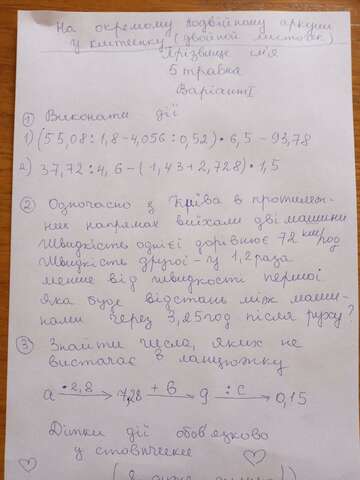 На окремому подвійному аркуші
у клітинку (двойной листочек)
Прізвище ім'я
5 травня
Варіант I
① Виконати дії
1) (55,08 : 1,8 - 4,056 : 0,52) • 6,5 - 93,78
2) 37,72 : 4,6 - (1,43 + 2,728) • 1,5
② Одночасно з Києва в протилеж-
них напрямах виїхали дві машини
Швидкість однієї дорівнює 72 км/год
Швидкість другої - у 1,2 раза
менше від швидкості першої
Яка буде відстань між маши-
нами через 3,25 год після руху?
③ Знайти числа, яких не
вистачає в ланцюжку
a • 2,8 → 7,28 + в → 9 : с → 0,15
Дітки дії обов'язково
у стовпчики